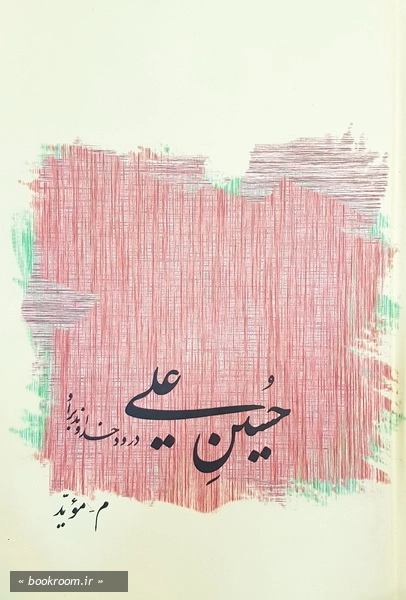 حُسینِ علی
درود خداوند بر او
م- مؤیّد
« bookroom.ir »